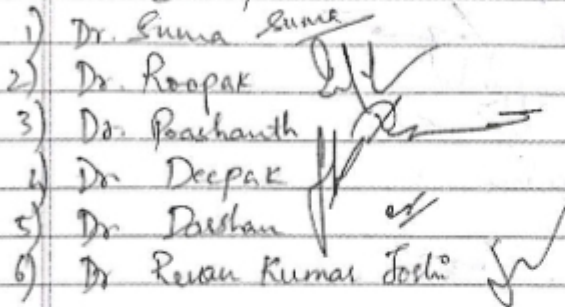 1) Dr. Suma Suma
2) Dr. Roopak
3) Dr. Prashanth
4) Dr Deepak
5) Dr Darshan
6) Dr Revan Kumar Joshi